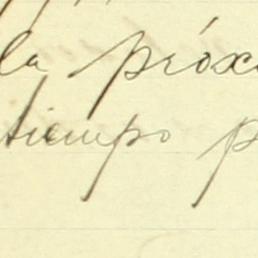 la próx
tiempo p